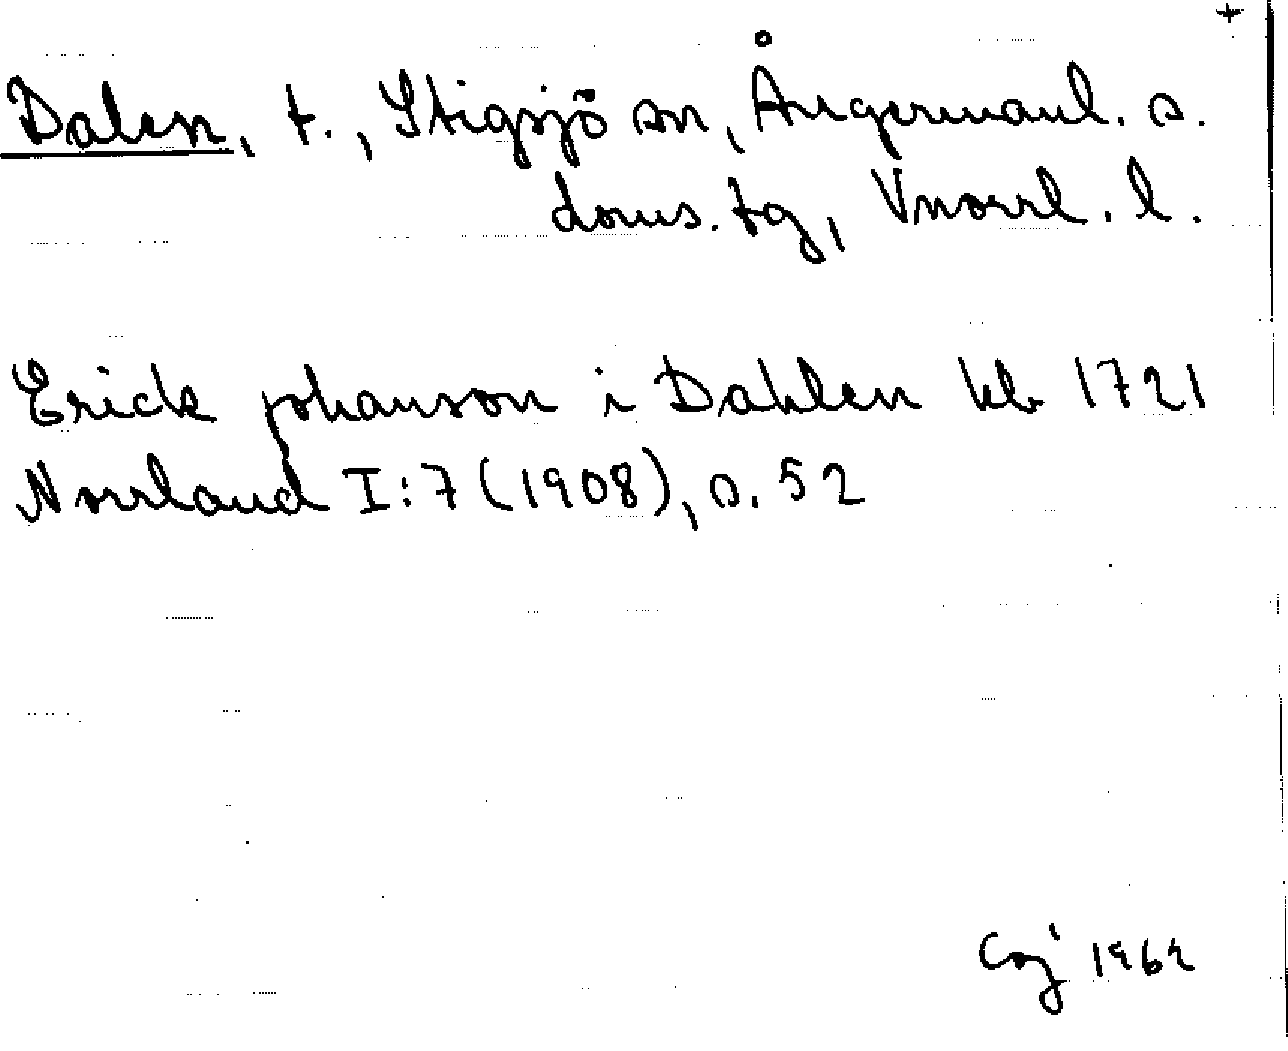 +
Dalen, t., Stigsjö sn, Ångermanl. s.
doms. tg, Vnorrl. l.
Erick johanson i Dahlen kb 1721
Norrland I:7 (1908), s. 52
CGJ 1962